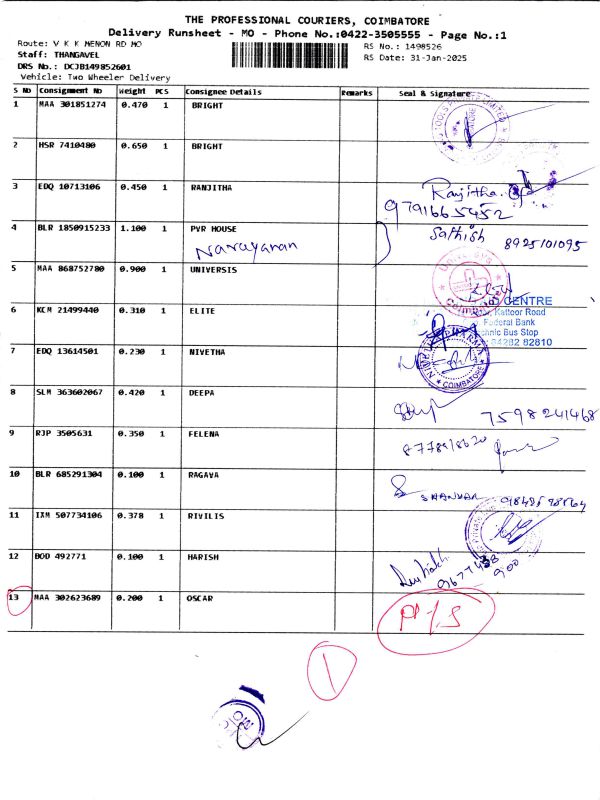 THE PROFESSIONAL COURIERS, COIMBATORE
Delivery Runsheet - MO - Phone No.:0422-3505555 - Page No.:1
Route: V K K MENON RD MO
RS No.: 1498526
Staff: THANGAVEL
RS Date: 31-Jan-2025
DRS No.: DCJB149852601
Vehicle: Two Wheeler Delivery
S No Consignment No Weight PCS Consignee Details Remarks Seal & Signature
1 MAA 301851274 0.470 1 BRIGHT
2 HSR 7410480 0.650 1 BRIGHT
3 EDQ 10713106 0.450 1 RANJITHA Ranjitha
9791665452
4 BLR 1850915233 1.100 1 PVR HOUSE Sathish 8925101095
Narayanan
5 MAA 868752780 0.900 1 UNIVERSIS
COIMBATORE
6 KCM 21499440 0.310 1 ELITE
CENTRE
Kattoor Road
Federal Bank
Bus Stop
84282 82810
7 EDQ 13614501 0.230 1 NIVETHA
COIMBATORE
8 SLM 363602067 0.420 1 DEEPA 7598241468
9 RJP 3505631 0.350 1 FELENA
10 BLR 685291304 0.100 1 RAGAVA SHANKAR
11 IXM 507734106 0.378 1 RIVILIS
12 BOD 492771 0.100 1 HARISH
13 MAA 302623689 0.200 1 OSCAR
1